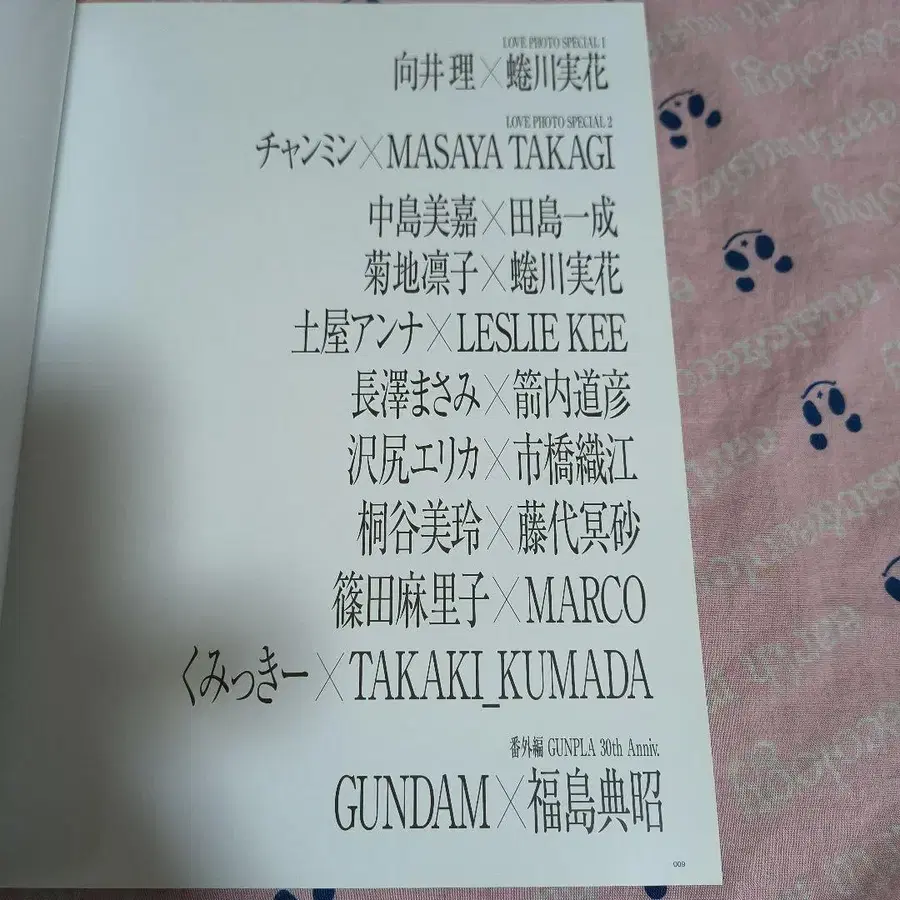 LOVE PHOTO SPECIAL 1
向井理×蜷川実花
LOVE PHOTO SPECIAL 2
チャンミン×MASAYA TAKAGI
中島美嘉×田島一成
菊地凛子×蜷川実花
土屋アンナ×LESLIE KEE
長澤まさみ×箭内道彦
沢尻エリカ×市橋織江
桐谷美玲×藤代冥砂
篠田麻里子×MARCO
くみっきー×TAKAKI_KUMADA
番外編 GUNPLA 30th Anniv.
GUNDAM×福島典昭
009